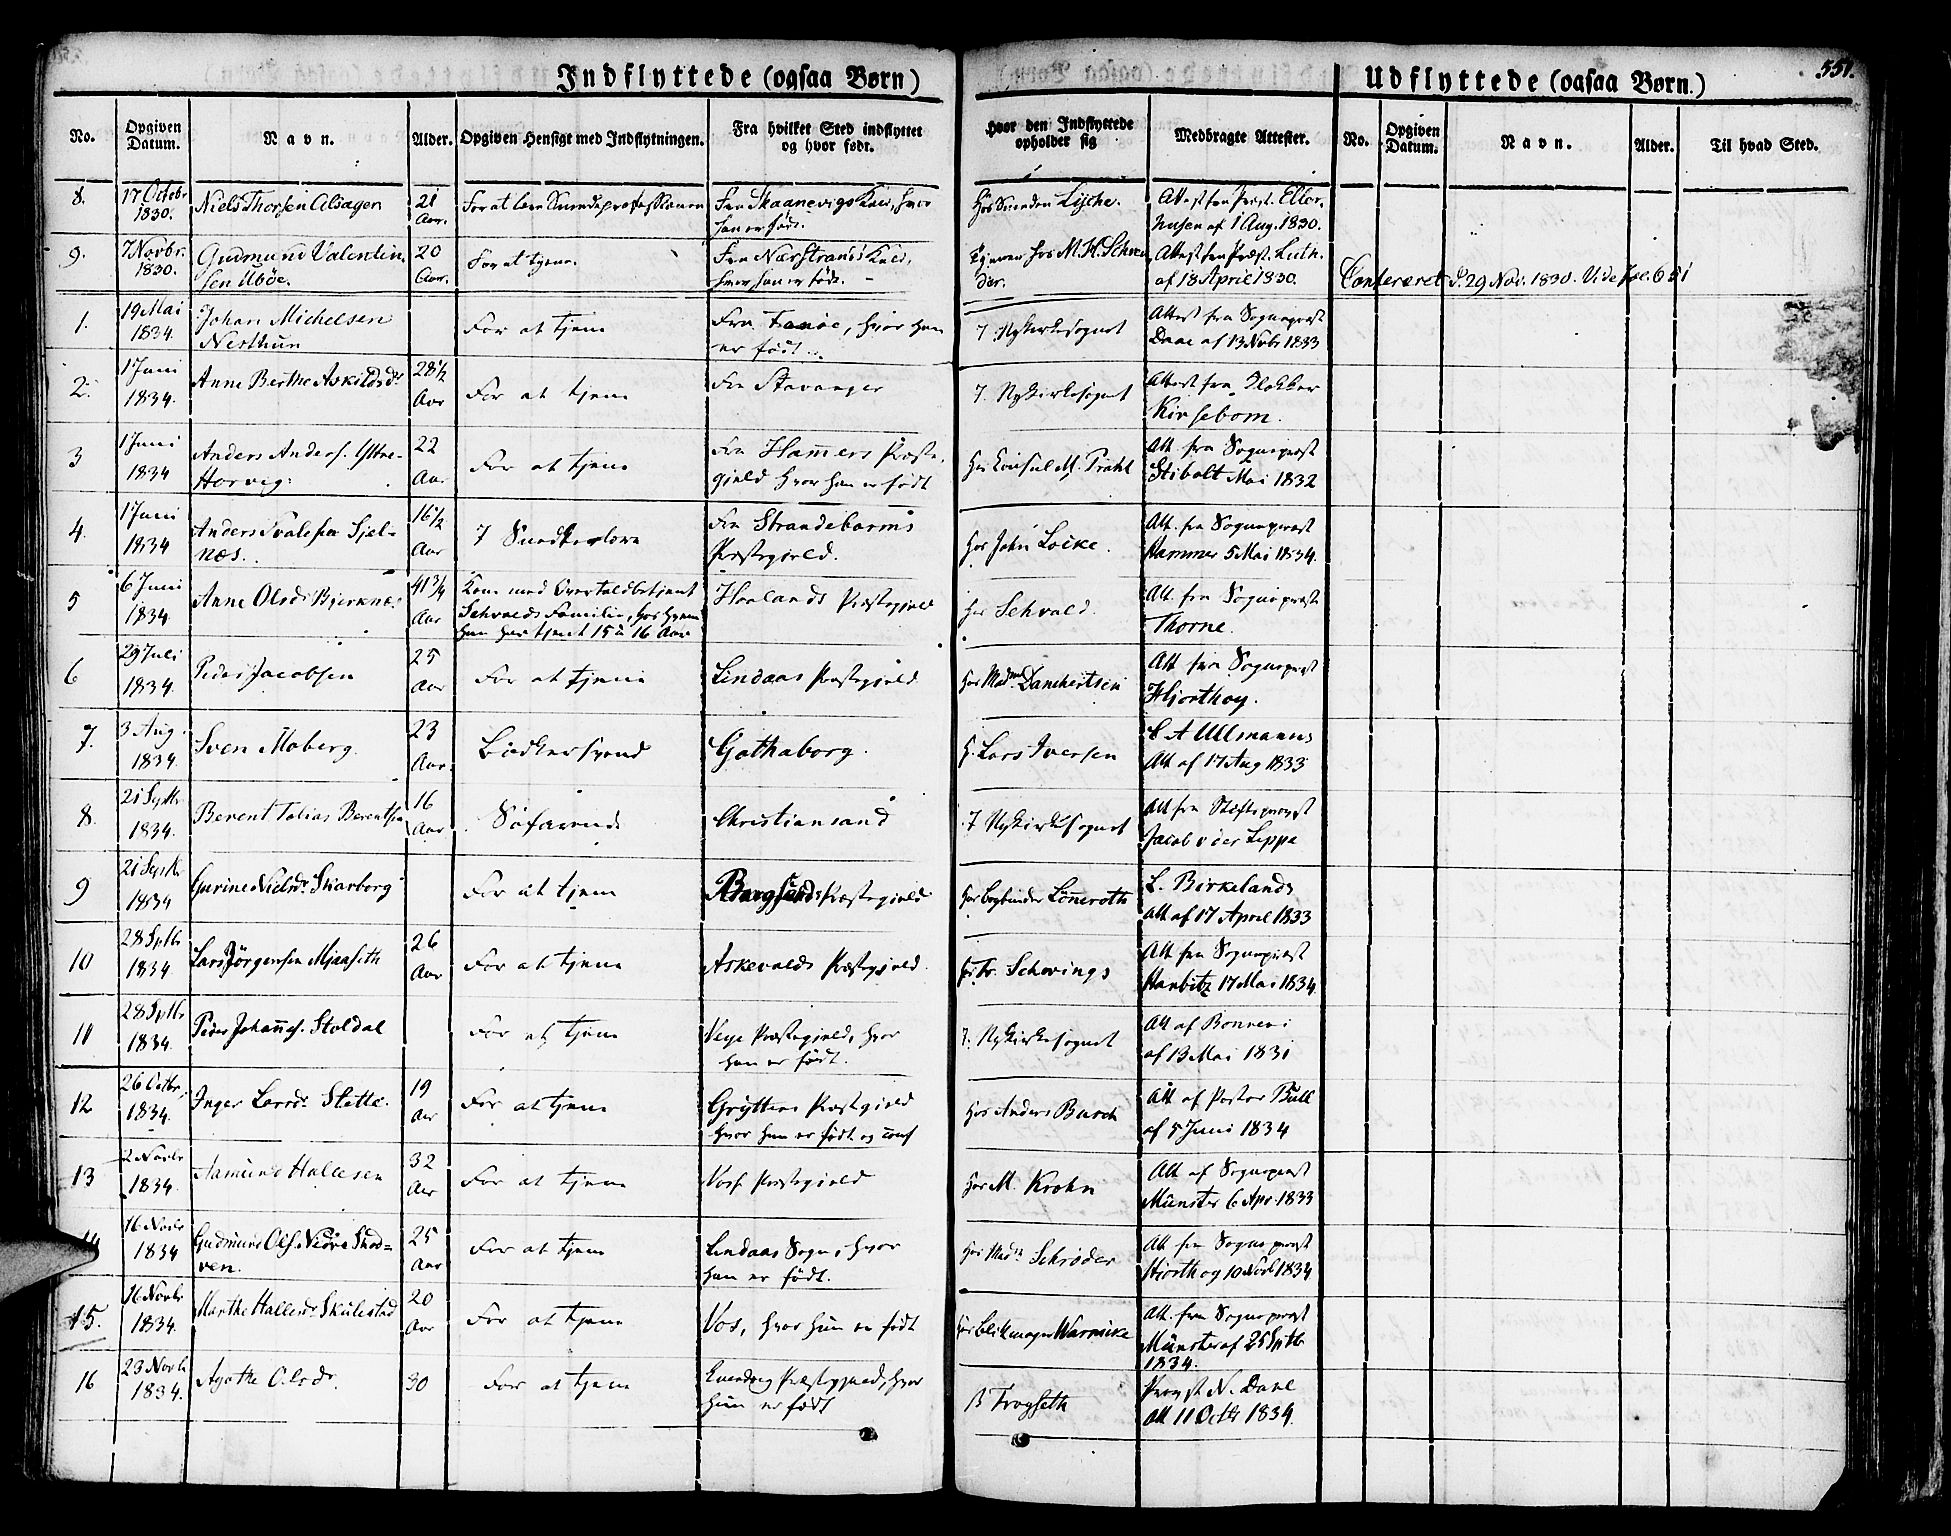 551.
Indflyttede (ogsaa Børn)
No.
Opgiven Datum.
Navn.
Alder.
Opgiven Hensigt med Indflytningen.
Fra hvilket Sted indflyttet og hvor født.
Hvor den Indflyttede opholder sig
Medbragte Attester.
Udflyttede (ogsaa Børn.)
No.
Opgiven Datum.
Navn.
Alder.
Til hvad Sted.
8.
17 Octobr 1830.
Niels Thorsen Alsager
21 Aar.
For at lære
Fra Skaanevigs
han er født.
Hos
Attest fra Præst.
af 1 Aug. 1830.
9.
7 Novbr. 1830.
Gudmund Valentin
sen Ubøe.
20 Aar.
For at tjene
Fra Nærstrands
hvor han er født.
Tjener hos M. K.
Attest fra Præst. Luth.
af 18 April 1830.
d. 29 Nov. 1830. Vide Fol. 651
1.
19 Mai 1834
Johan Michelsen
Nesthun
For at tjene
Fra Fanöe, hvor han
er født
I Nykirkesognet
Attest fra Sognepræst
Daae af 13 Novbr 1833
2.
1 Juni 1834.
Anne Berthe Askildsdr
28 1/2 Aar
For at tjene
Fra Stavanger
I Nykirkesognet
Attest fra Klokker
Kirsebom.
3
1 Juni 1834
Anders Anders. Yttre-
Horvig.
22 Aar
For at tjene
Fra Hammers Præste-
gjeld hvor han er født
Hos Consul M. Prahl
Att fra Sognepræst
Stibolt Mai 1832
4.
1 Juni 1834
Anders
næs.
16 1/2 Aar
I Snedkerlære
Fra Strandebarms
Præstegjeld.
Hos John Locke.
Att. fra Sognepræst
Hammer 5 Mai 1834.
5
6 Juni 1834.
Anne Olsdr Bjerknæs
41 3/4 Aar
Kom med Overtoldbetjent
Sehvalds Familie, hos hvem
hun har tjent 15 à 16 Aar
Haalands Præstegjeld
Hos Sehvald.
Att. fra Sognepræst
Thorne.
6
29 Juli 1834.
Peder Jacobsen
25 Aar
For at tjene
Lindaas Præstegjeld
Hos Mad. Danchertsen
Att fra Sognepræst
Hjorthoy.
7.
3 Aug. 1834.
Sven Moberg.
23 Aar.
Bødkersvend
Gothaborg.
H. Lars Iversen
C A Ullmanns
Att af 17 Aug 1833
8.
21 Septb 1834.
Berent Tobias Berentsen
16 Aar
Söfarende
Christiansand
I Nykirkesognet
Att fra Stiftsprovst
Jacob v der Lippe
9
21 Septb 1834
Gurine Nielsdr Skarborg
For at tjene
Præstegjeld
Hos bogbinder Lönneroth
L. Birkelands
Att af 17 April 1833
10
28 Septb 1834.
Lars Jörgensen Mjaaseth
26 Aar
For at tjene
Askevolds Præstegjeld.
Hos Fr. Schovings
Att fra Sognepræst
Harbitz 17 Mai 1834
11
28 Septb 1834.
Peder Johannes. Stoldal
For at tjene
Veye Præstegjeld, hvor
han er født.
I Nykirkesognet
Att af Bonnevi
af 13 Mai 1831
12
26 Octbr. 1834.
Inger Larsdr Slette.
19 Aar
For at tjene
Gryttens Præstegjeld
hvor hun er født og conf
Hos Anders Busch
Att af Pastor Bull
af 5 Juni 1834
13
2 Novbr 1834.
Aamund Hallesen
32 Aar
For at tjene
Voss Præstegjeld
Hos M. Krohn
Att af Sognepræst
Münster 6 Apr. 1833
16 Novbr 1834
Gudmund Ols. Nedre Skod-
ven.
25 Aar
For at tjene
Lindaas Sogn, hvor
han er født.
Hos Mad. Schröder
Att fra Sognepræst
Hjorthoy 10 Novb 1834
15.
16 Novbr 1834.
Marthe Hallesdr Skulestad
20 Aar
For at tjene
Vos, hvor hun er født
Hos blikmager Warncke
Att. fra Sognepræst
Münster af 25 Septb
1834.
16
23 Novb 1834.
Agathe Olsdr.
30
For at tjene
Evindvig Præstegjeld, hvor
hun er født
Troyseth
Provst N. Dahl
Att 11 Octb 1834.